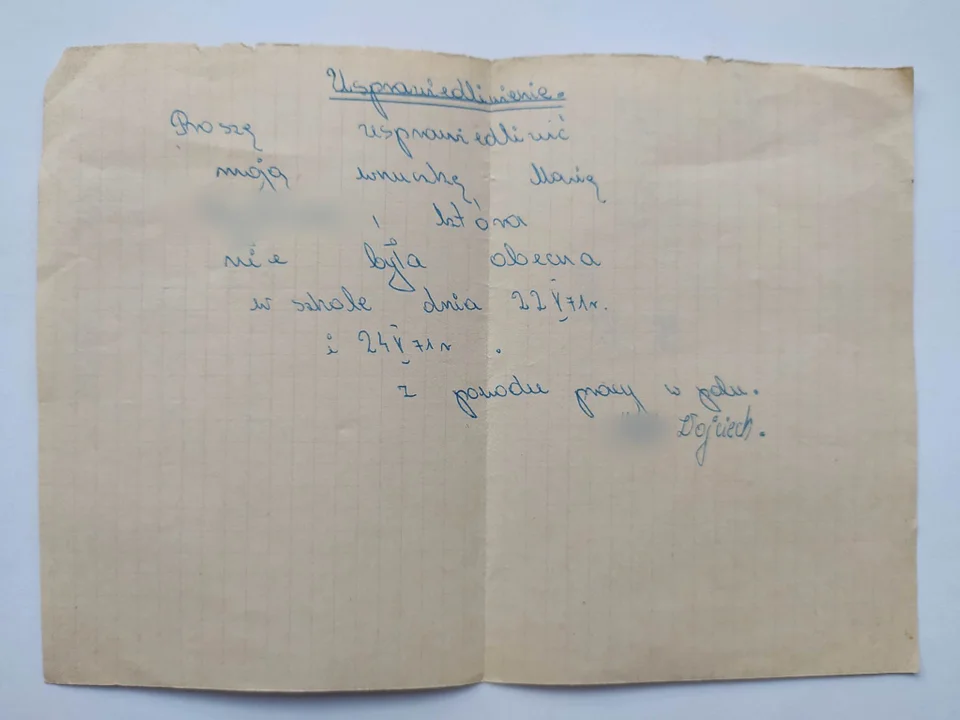 Usprawiedliwienie.
Proszę usprawiedliwić
moją wnuczkę Marię
, która
nie była obecna
w szkole dnia 22 V 71 r.
i 24 V 71 r .
z powodu pracy w polu.
Wojciech.